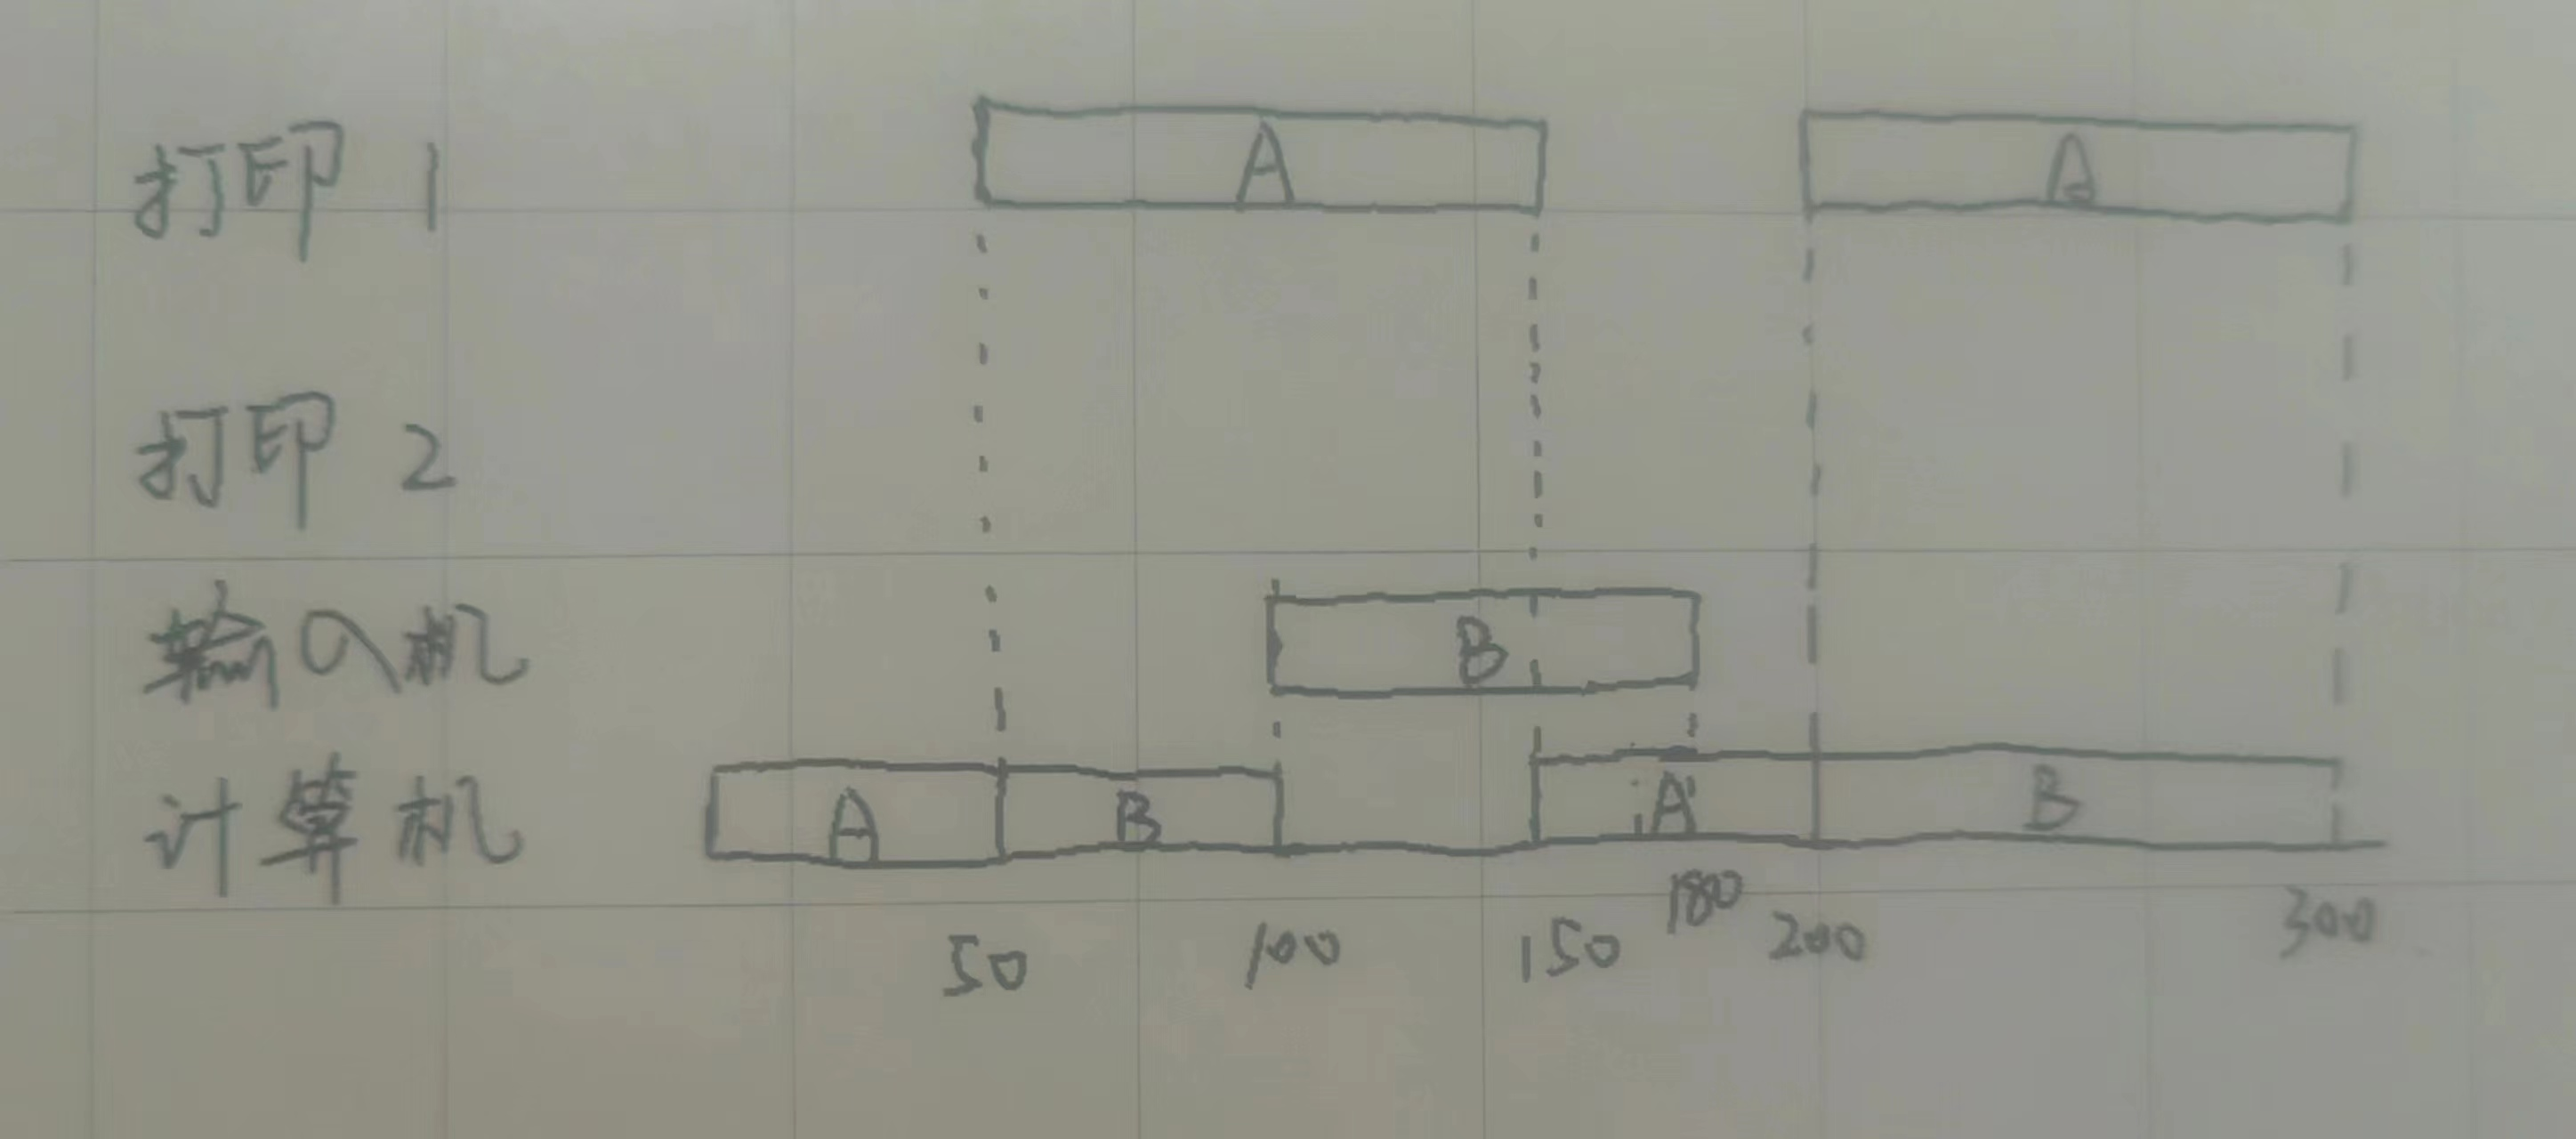 打印 1 A A
打印 2
输入机 B
计算机 A B A B
50 100 150 180 200 300